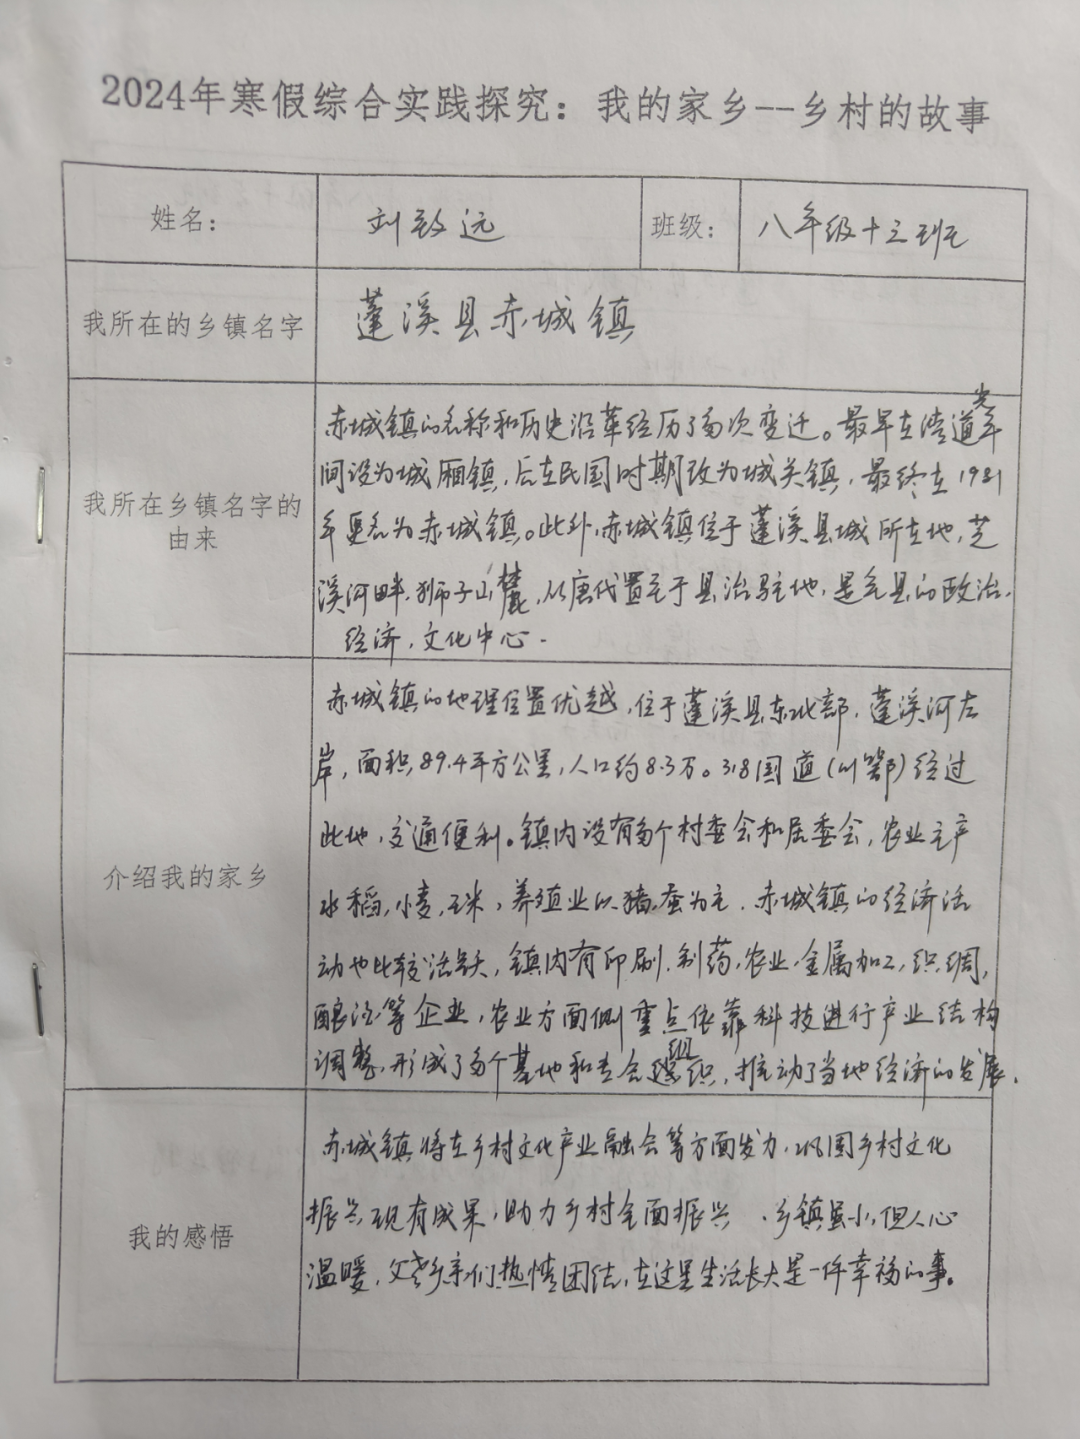 2024年寒假综合实践探究：我的家乡--乡村的故事
姓名： 刘致远 班级： 八年级十三班
我所在的乡镇名字 蓬溪县赤城镇
我所在乡镇名字的
由来
赤城镇的名称和历史沿革经历了多次变迁。最早在清道光年
间设为城厢镇，后在民国时期改为城关镇，最终在1981
年更名为赤城镇。此外，赤城镇位于蓬溪县城所在地，芝
溪河畔，狮子山麓，从唐代置至于县治驻地，是全县的政治，
经济，文化中心.
介绍我的家乡
赤城镇的地理位置优越，位于蓬溪县东北部，蓬溪河左
岸，面积89.4平方公里，人口约8.3万。318国道(川鄂)经过
此地，交通便利。镇内设有多个村委会和居委会，农业主产
水稻，小麦，玉米，养殖业以猪、蚕为主．赤城镇的经济活
动也比较活跃，镇内有印刷，制药，农业，金属加工，织绸，
酿酒等企业，农业方面侧重点依靠科技进行产业结构
调整，形成了多个基地和专会组织，推动了当地经济的发展．
我的感悟
赤城镇将在乡村文化产业融合等方面发力，巩固乡村文化
振兴现有成果，助力乡村全面振兴．乡镇虽小，但人心
温暖，父老乡亲们热情团结，在这里生活长大是一件幸福的事。